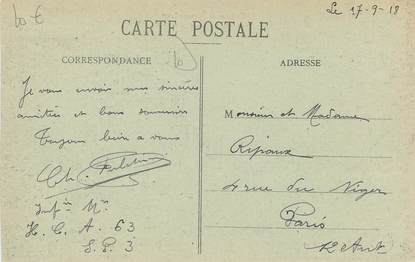 10 €
Le 17-9-18
CARTE POSTALE
CORRESPONDANCE
ADRESSE
Je vous envoie mes sincères
amitiés et bons souvenirs
Toujours bien a vous
Ch.
Monsieur et Madame
Ripaux
4 rue du Niger
Paris
12e Arrt
Infer Mre
H. C. A. 63
S. P. 3